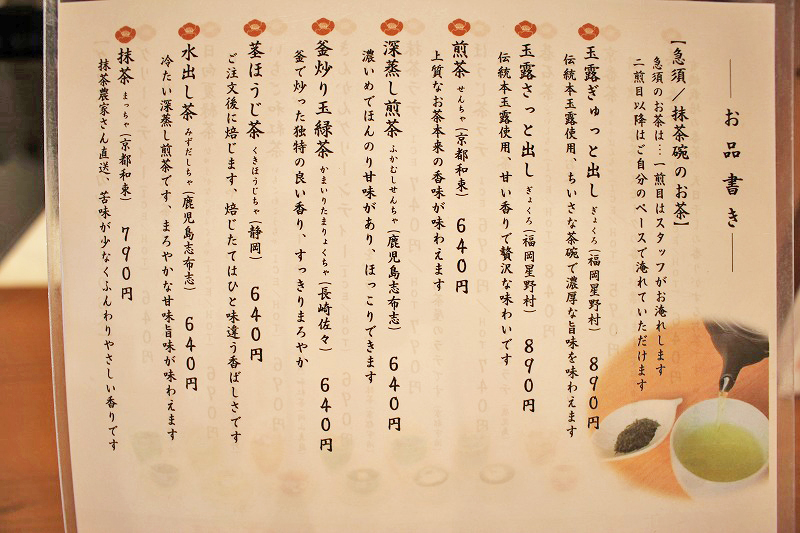 お品書き
【急須/抹茶碗のお茶】
急須のお茶は…一煎目はスタッフがお淹れします
二煎目以降はご自分のペースで淹れていただけます
玉露ぎゅっと出し ぎょくろ(福岡星野村) 890円
伝統本玉露使用、ちいさな茶碗で濃厚な旨味を味わえます
玉露さっと出し ぎょくろ(福岡星野村) 890円
伝統本玉露使用、甘い香りで贅沢な味わいです
煎茶 せんちゃ(京都和束) 640円
上質なお茶本来の香味が味わえます
深蒸し煎茶 ふかむしせんちゃ(鹿児島志布志) 640円
濃いめでほんのり甘味があり、ほっこりできます
釜炒り玉緑茶 かまいりたまりょくちゃ(長崎佐々) 640円
釜で炒った独特の良い香り、すっきりまろやか
茎ほうじ茶 くきほうじちゃ(静岡) 640円
ご注文後に焙じます、焙じたてはひと味違う香ばしさです
水出し茶 みずだしちゃ(鹿児島志布志) 640円
冷たい深蒸し煎茶です、まろやかな甘味旨味が味わえます
抹茶 まっちゃ(京都和束) 790円
抹茶農家さん直送、苦味が少なくふんわりやさしい香りです